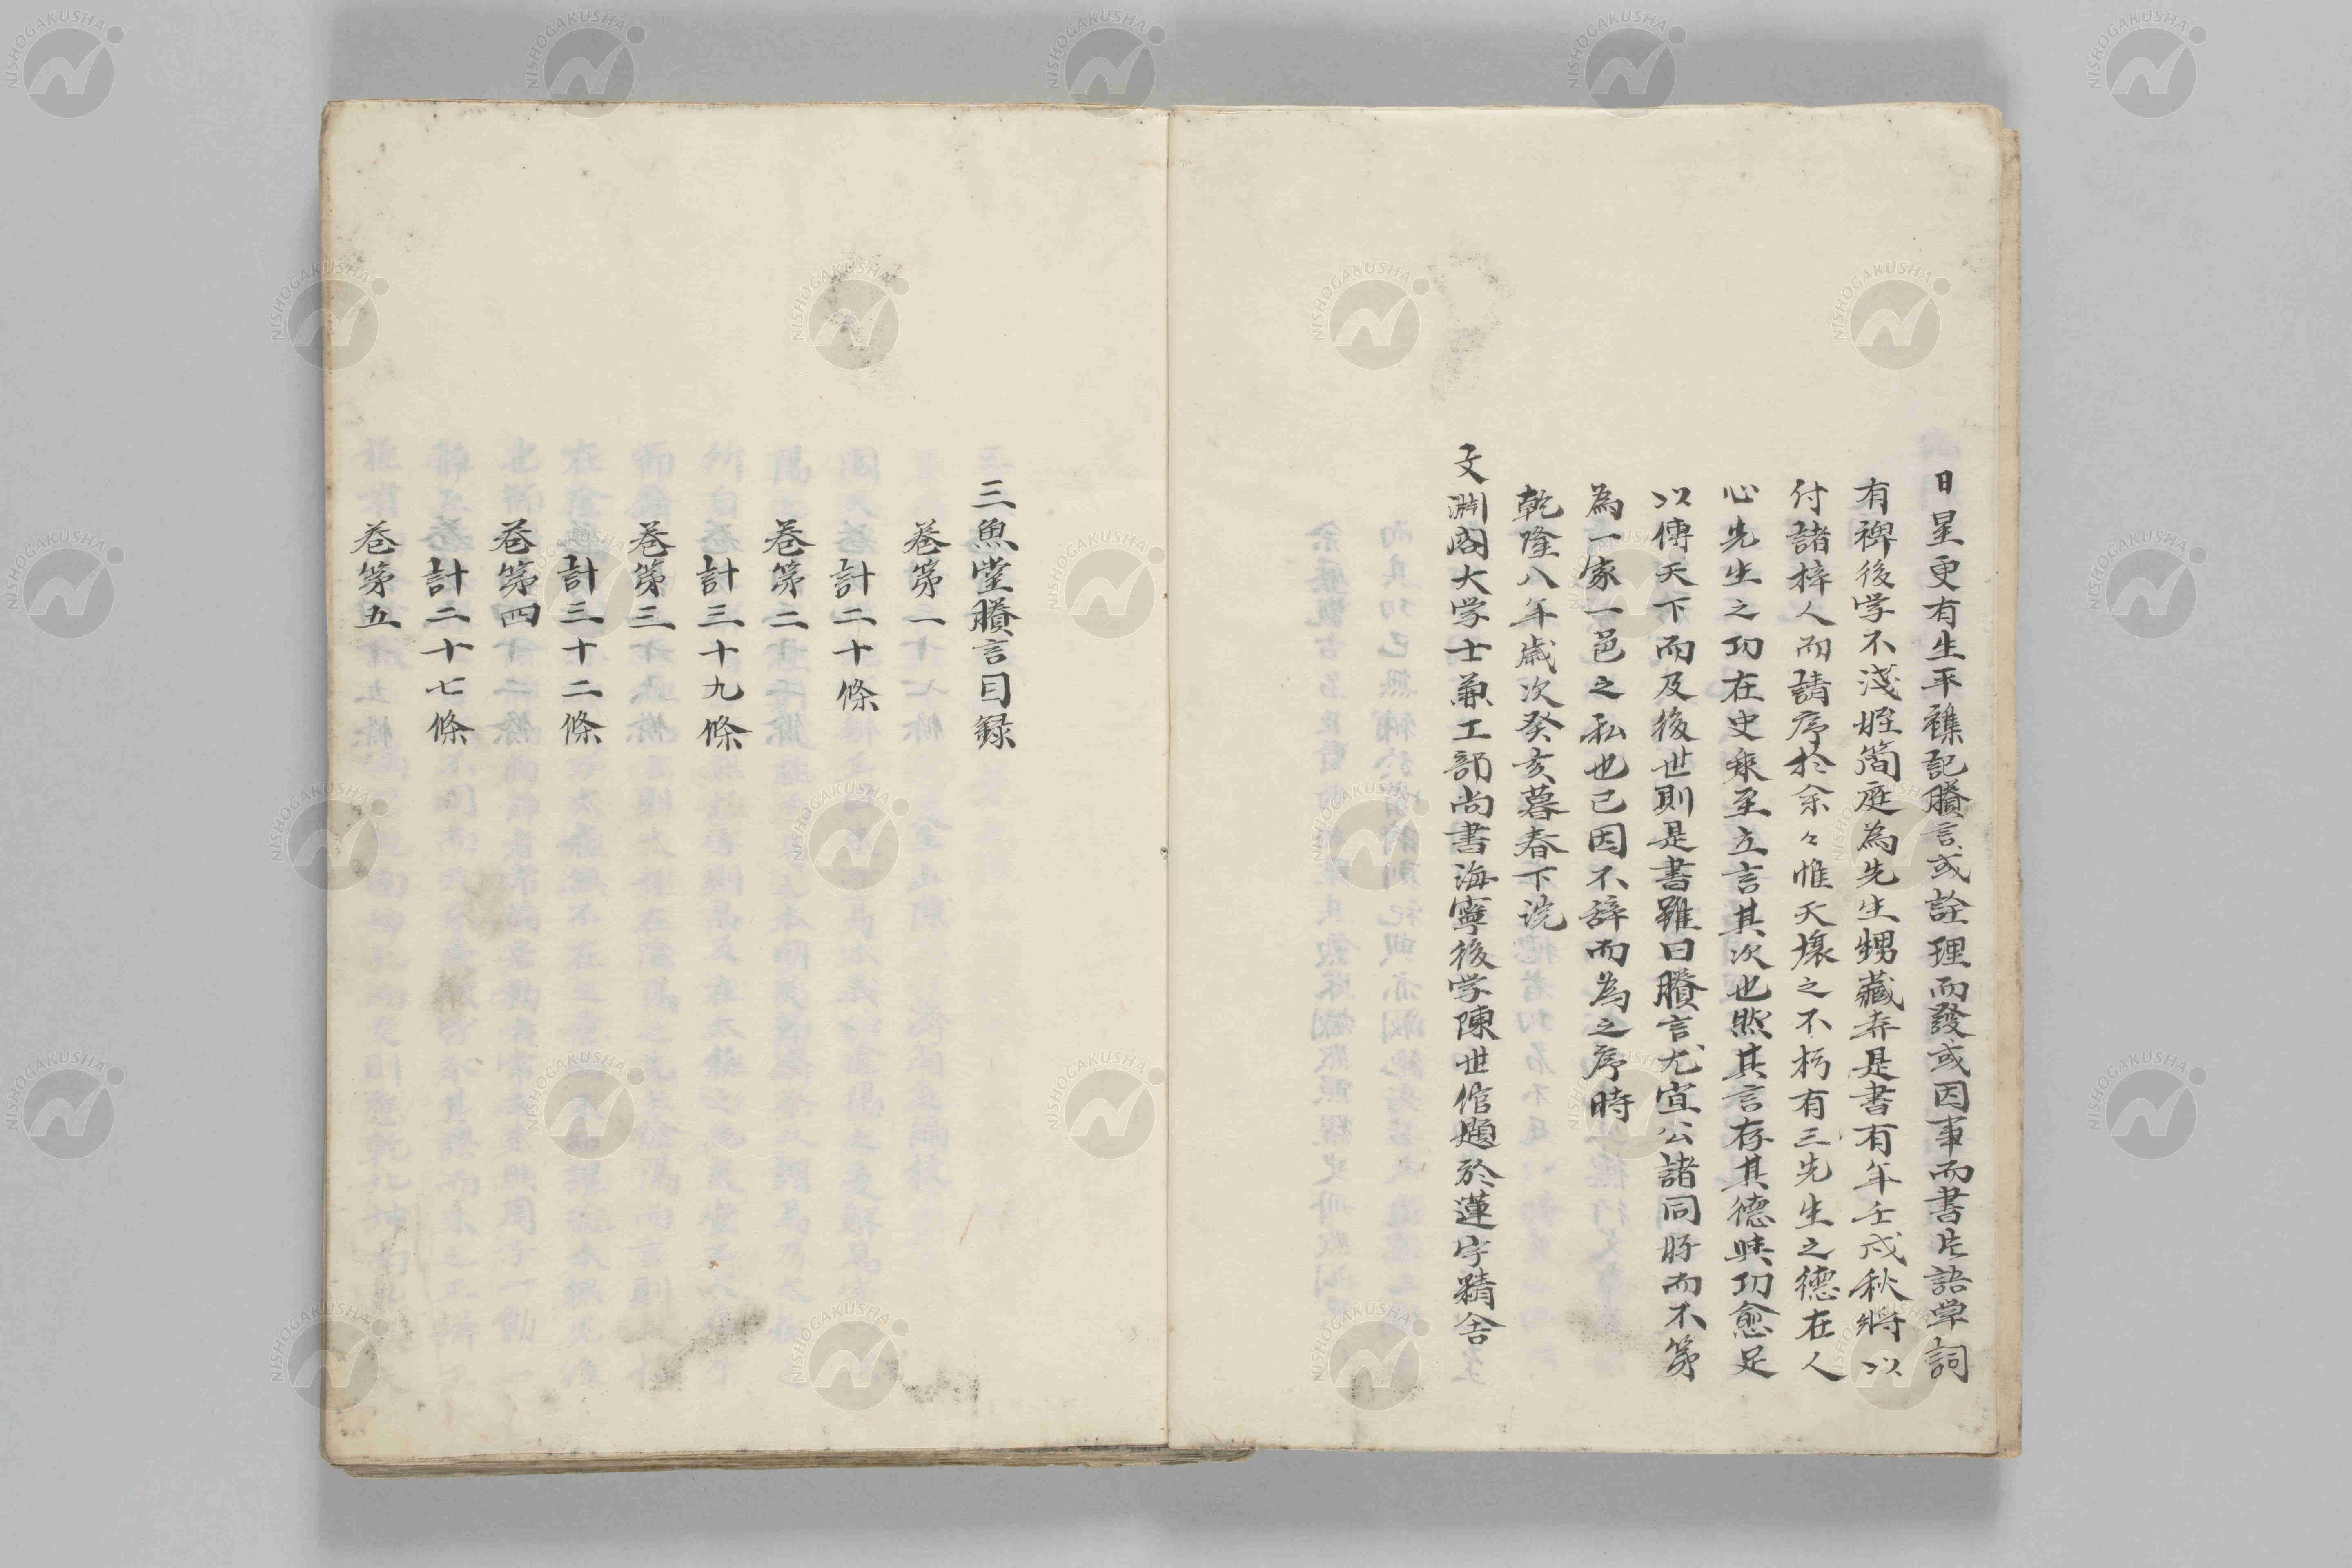 日星更有生平襍記賸言或詮理而發或因事而書片語单詞
有裨後学不淺姪簡庭為先生甥藏弆是書有年壬戌秋將以
付諸梓人而請序於余々惟天壤之不朽有三先生之德在人
心先生之功在史乘至立言其次也然其言存其德與功愈足
以傳天下而及後世則是書雖曰賸言尤宜公諸同好而不第
為一家一邑之私也已因不辞而為之序時
乾隆八年歲次癸亥暮春下浣
文淵閣大学士兼工部尚書海寧後学陳世倌題於蓮宇精舍
三魚堂賸言目録
巻第一
計二十條
巻第二
計三十九條
巻第三
計三十二條
巻第四
計二十七條
巻第五
NISHOGAKUSHA